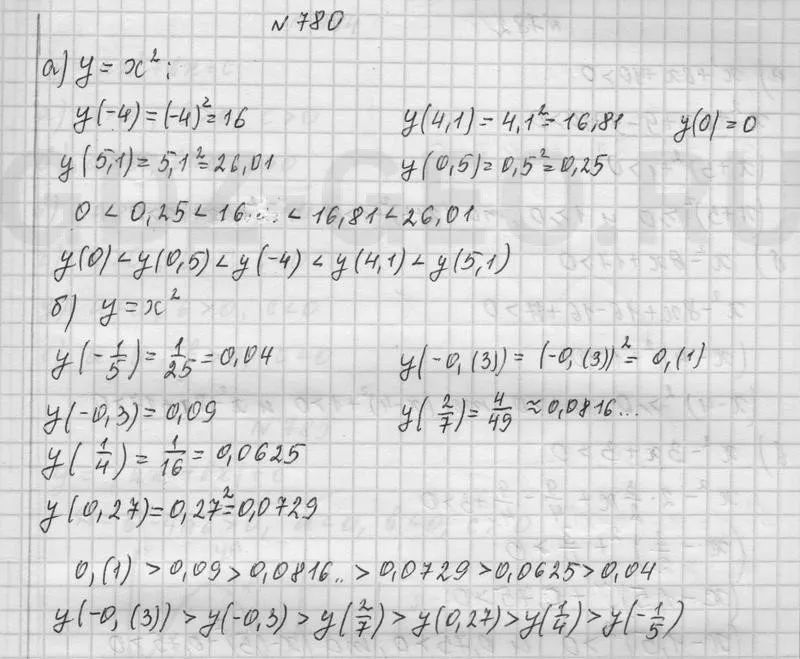 №780
а) y = x²;
y(-4) = (-4)² = 16 y(4,1) = 4,1² = 16,81 y(0) = 0
y(5,1) = 5,1² = 26,01 y(0,5) = 0,5² = 0,25
0 < 0,25 < 16 < 16,81 < 26,01
y(0) < y(0,5) < y(-4) < y(4,1) < y(5,1)
б) y = x²
y(-1/5) = 1/25 = 0,04 y(-0,(3)) = (-0,(3))² = 0,(1)
y(-0,3) = 0,09 y(2/7) = 4/49 ≈ 0,0816...
y(1/4) = 1/16 = 0,0625
y(0,27) = 0,27² = 0,0729
0,(1) > 0,09 > 0,0816.. > 0,0729 > 0,0625 > 0,04
y(-0,(3)) > y(-0,3) > y(2/7) > y(0,27) > y(1/4) > y(-1/5)